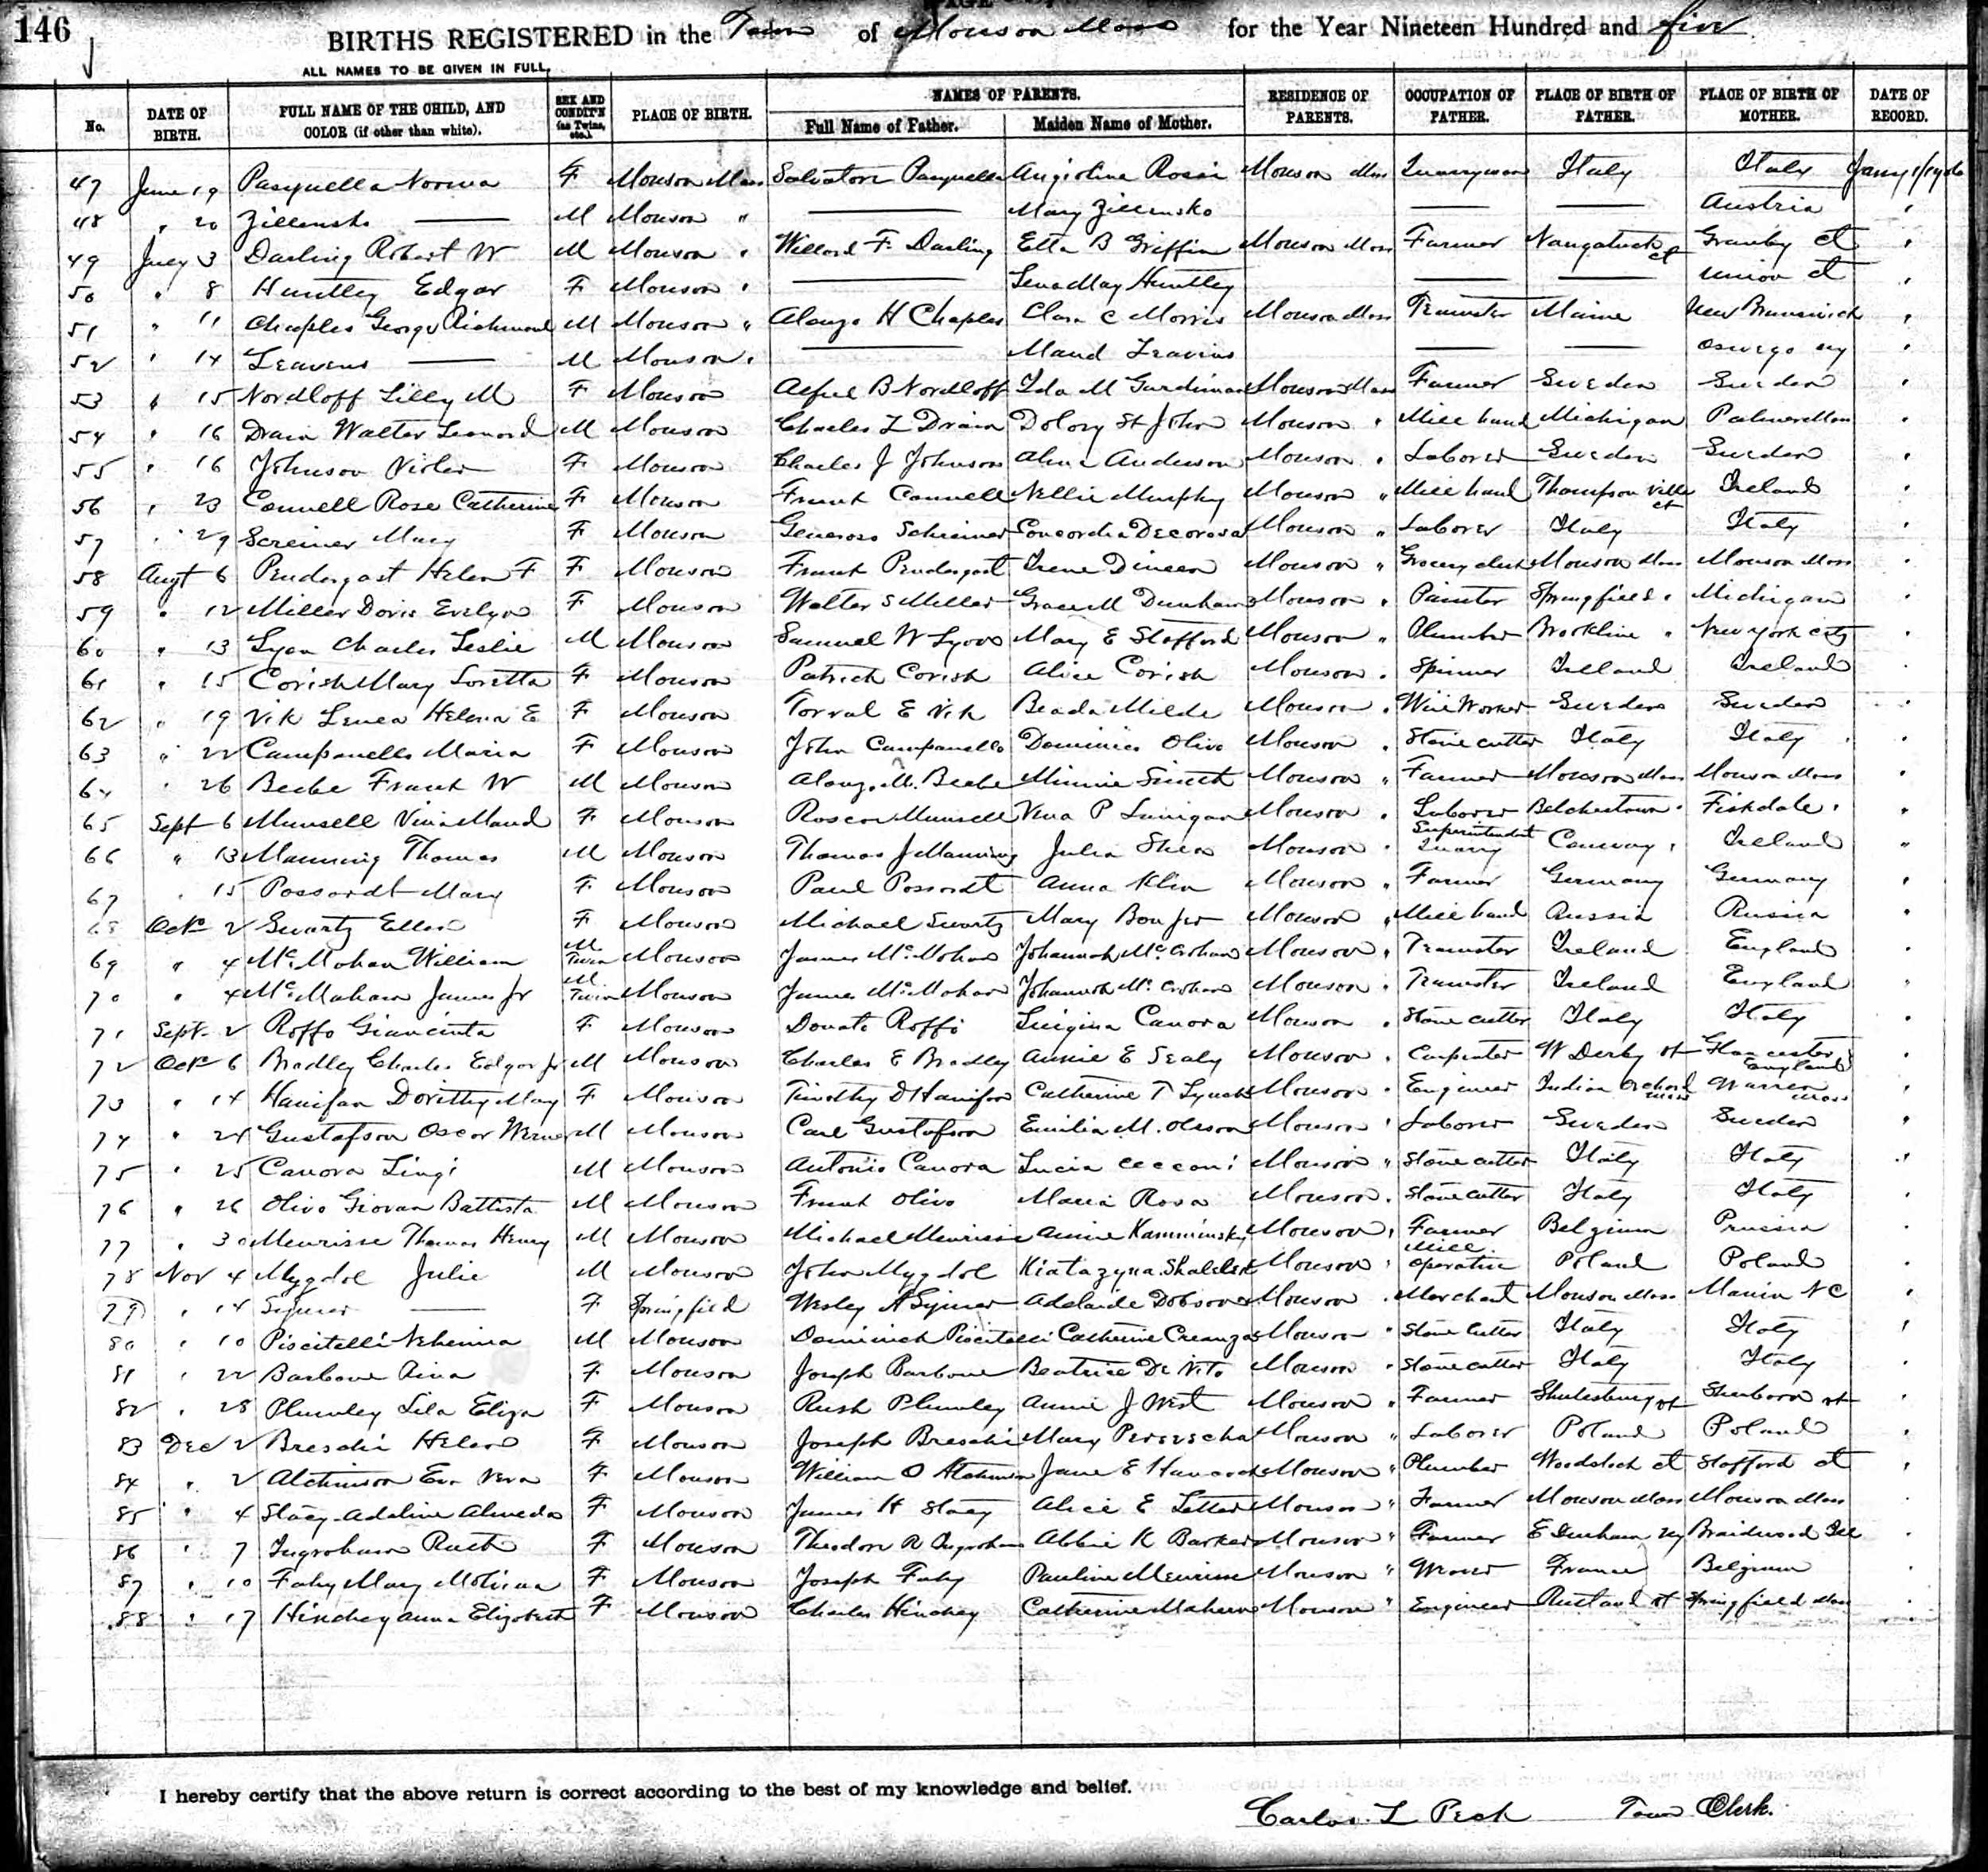 146
BIRTHS REGISTERED in the Town of Monson Mass for the Year Nineteen Hundred and five
ALL NAMES TO BE GIVEN IN FULL.
No. DATE OF BIRTH. FULL NAME OF THE CHILD, AND COLOR (if other than white). SEX AND CONDIT'N (as Twins, etc.) PLACE OF BIRTH. NAMES OF PARENTS. Full Name of Father. Maiden Name of Mother. RESIDENCE OF PARENTS. OCCUPATION OF FATHER. PLACE OF BIRTH OF FATHER. PLACE OF BIRTH OF MOTHER. DATE OF RECORD.
47 June 19 Pasquella Norma F Monson Mass Salvatore Pasquella Angiolina Rossi Monson Mass Quarryman Italy Italy Jany 1/1906
48 " 20 Zillensko — M Monson " — Mary Zillensko — — Austria "
49 July 3 Darling Robert W M Monson " Willard F. Darling Etta B Griffin Monson Mass Farmer Naugatuck ct Granby ct "
50 " 8 Huntley Edgar F Monson " — Lena May Huntley — — Union ct "
51 " 11 Chaples George Richmond M Monson " Alonzo H Chaples Clara C Morris Monson Mass Teamster Maine New Brunswick "
52 " 14 Leavens — M Monson " — Maud Leavins — — Oswego ny "
53 " 15 Nordloff Lilly M F Monson Alfred B Nordloff Ida M Monson Mass Farmer Sweden Sweden "
54 " 16 Drain Walter Leonard M Monson Charles L Drain Dolory St John Monson " Mill hand Michigan Palmer Mass "
55 " 16 Johnson Violer F Monson Charles J Johnson Alma Anderson Monson " Laborer Sweden Sweden "
56 " 23 Connell Rose Catherine F Monson Frank Connell Nellie Murphy Monson " Mill hand Thompsonville ct Ireland "
57 " 29 Screiner Mary F Monson Generoso Schreiner Concordia Decorosa Monson " Laborer Italy Italy "
58 Augt 6 Pendergast Helen F F Monson Frank Pendergast Irene Dineen Monson " Grocery clerk Monson Mass Monson Mass "
59 " 12 Miller Doris Evelyn F Monson Walter S Miller Grace M Dunham Monson " Painter Springfield " Michigan "
60 " 13 Lyon Charles Leslie M Monson Samuel W Lyon Mary E Stafford Monson " Plumber Brookline " New York City "
61 " 15 Corish Mary Loretta F Monson Patrick Corish Alice Corish Monson " Spinner Ireland Ireland "
62 " 19 Vik Linea Helena E F Monson Torval E Vik Beada Milde Monson " Wire Worker Sweden Sweden "
63 " 22 Campanello Maria F Monson John Campanello Dominica Olivo Monson " Stone cutter Italy Italy "
64 " 26 Beebe Frank W M Monson Alonzo M. Beebe Minnie Smith Monson " Farmer Monson Mass Monson Mass "
65 Sept 6 Munsell Vina Maud F Monson Roscoe Munsell Vina P Monson " Laborer Belchertown " Fiskdale " "
66 " 13 Manning Thomas M Monson Thomas J Manning Julia Shea Monson " Superintendent Quarry Conway " Ireland "
67 " 15 Possardt Mary F Monson Paul Possardt Anna Klin Monson " Farmer Germany Germany "
68 Oct 2 Swartz Ellen F Monson Michael Swartz Mary Monson " Mill hand Russia Russia "
69 " 4 McMahan William M Twin Monson James McMahan Johannah McCrohan Monson " Teamster Ireland England "
70 " 4 McMahan James Jr M Twin Monson James McMahan Johannah McCrohan Monson " Teamster Ireland England "
71 Sept. 2 Roffo Giancinta F Monson Donato Roffo Luigina Canova Monson " Stone cutter Italy Italy "
72 Oct 6 Bradley Charles Edgar Jr M Monson Charles E Bradley Annie E Sealy Monson " Carpenter W Derby vt Glancester England "
73 " 14 Hanifan Dorithy May F Monson Timothy D Hanifan Catherine T Lynch Monson " Engineer Indian Orchard Mass Warren Mass "
74 " 24 Gustafson Oscar Werner M Monson Carl Gustafson Emilia M. Olsson Monson " Laborer Sweden Sweden "
75 " 25 Canova Lingi M Monson Antonio Canova Lucia Cecconi Monson " Stone cutter Italy Italy "
76 " 26 Olivo Giovan Battista M Monson Frank Olivo Maria Rosa Monson " Stone cutter Italy Italy "
77 " 30 Meurisse Thomas Henry M Monson Michael Meurisse Annie Kamminsky Monson " Farmer Belgium Prussia "
78 Nov 4 Mygdol Julie M Monson John Mygdol Kiatazyna Monson " Mill operative Poland Poland "
79 " 14 Squier — F Springfield Wesley A Squier Adelaide Dobson Monson " Merchant Monson Mass Marion N C "
80 " 10 Piscitelli Nehemia M Monson Dominick Piscitelli Catherine Creanza Monson " Stone Cutter Italy Italy "
81 " 22 Barbone Rina F Monson Joseph Barbone Beatrice De Vito Monson " Stone cutter Italy Italy "
82 " 28 Plumley Lila Eliza F Monson Rush Plumley Annie J West Monson " Farmer Shutesbury vt Sherborn vt "
83 Dec 2 Breschi Helen F Monson Joseph Breschi Mary Monson " Laborer Poland Poland "
84 " 2 Atchinson Eva Vera F Monson William O Atchinson Jane E Hancock Monson " Plumber Woodstock ct Stafford ct "
85 " 4 Stacy Adeline Almeda F Monson James H Stacy Alice E Monson " Farmer Monson Mass Monson Mass "
86 " 7 Ingraham Ruth F Monson Theodore R Ingraham Abbie K Barker Monson " Farmer E Durham ny Braidwood Ill "
87 " 10 Fahy Mary F Monson Joseph Fahy Pauline Meurisse Monson " Weaver France Belgium "
88 " 17 Hinchey Anna Elizabeth F Monson Charles Hinchey Catherine Mahern Monson " Engineer Rutland vt Springfield Mass "
I hereby certify that the above return is correct according to the best of my knowledge and belief.
Carlos L Peck Town Clerk.